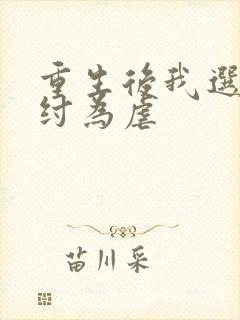 重生後我選
紂為虐
苗川采